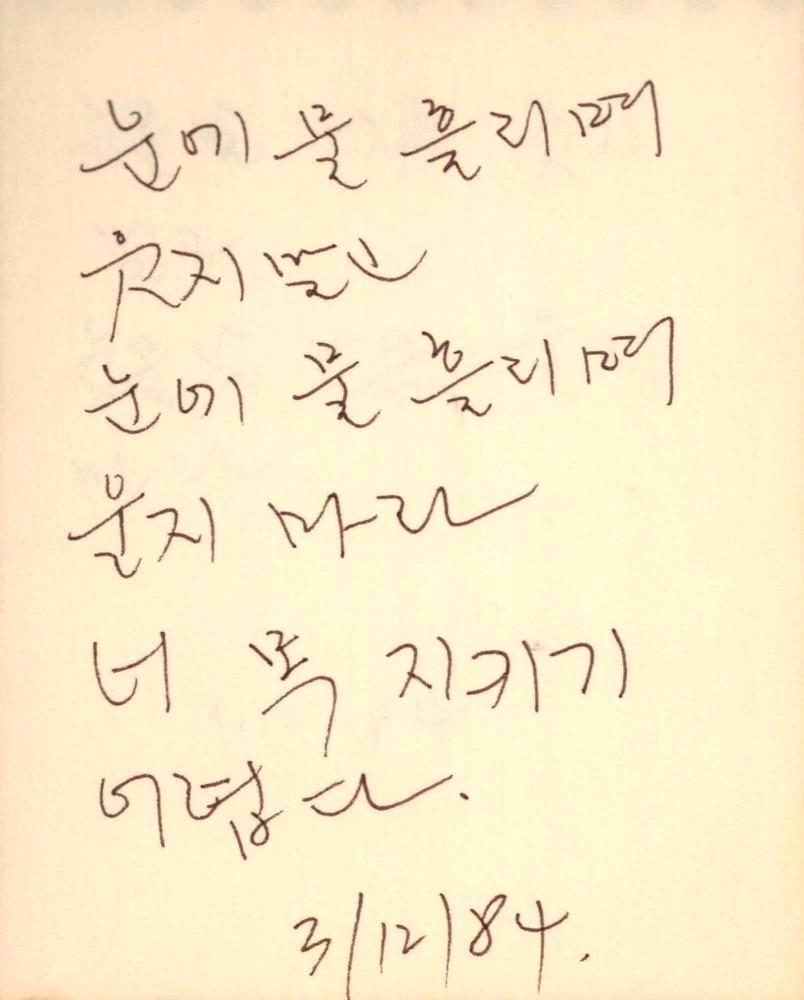 눈에 물 흘리며
웃지 말고
눈에 물 흘리며
울지 마라
너 목 지키기
어렵다.
3/12/84.